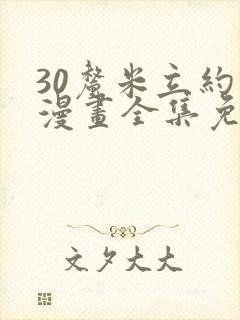 30釐米立約
漫畫全集免
文夕大大